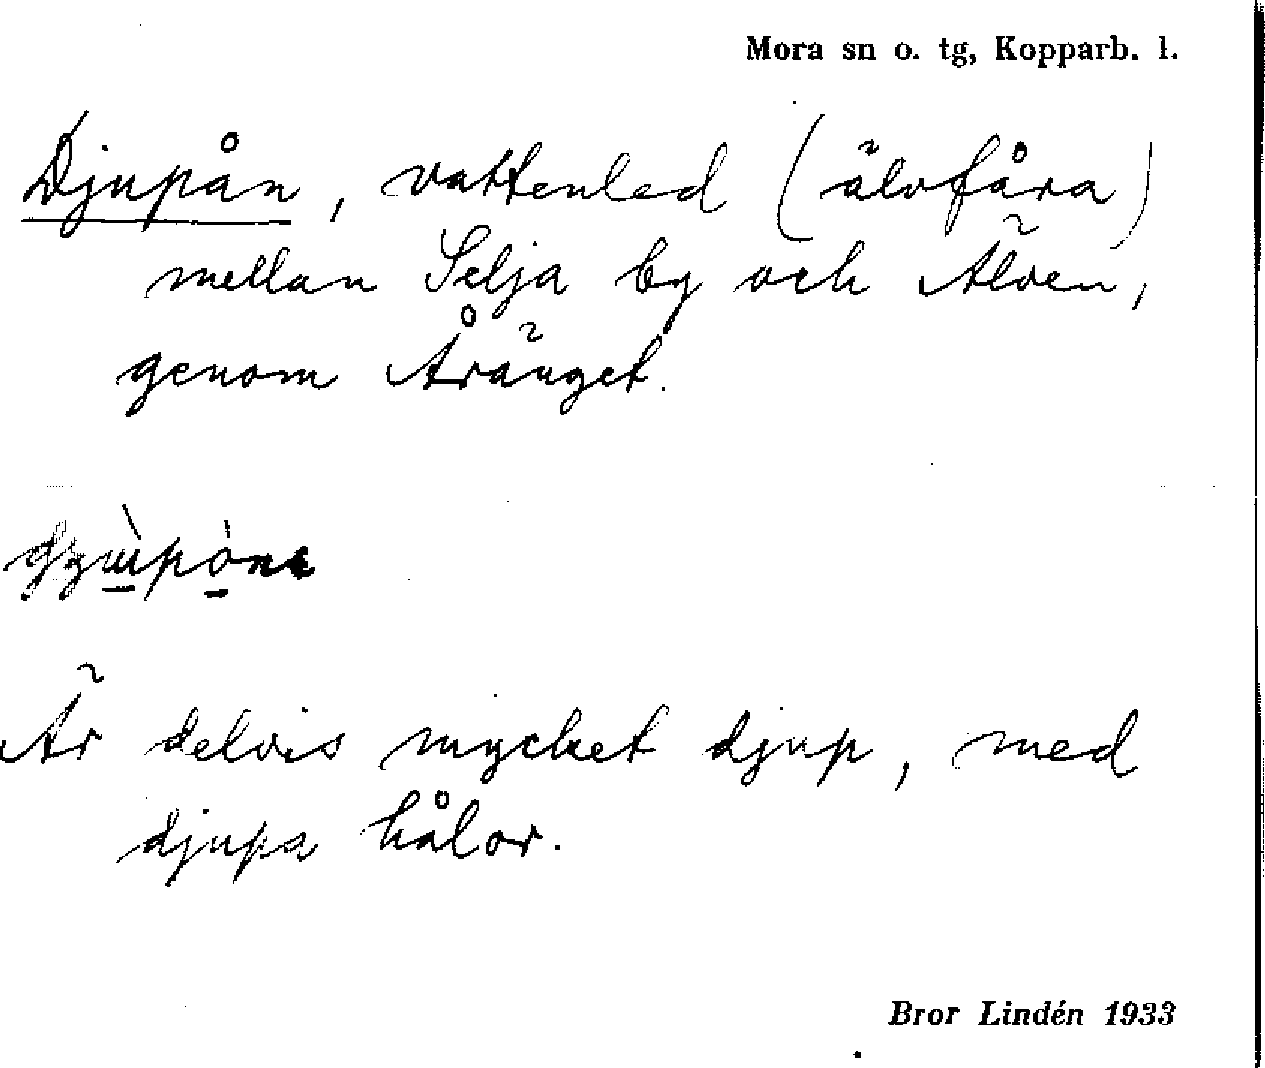 Mora sn o. tg, Kopparb. l.
Djupån, vattenled (älvfåra)
mellan Selja by och Älven,
genom Åränget.
Är delvis mycket djup, med
djupa hålor.
Bror Lindén 1933